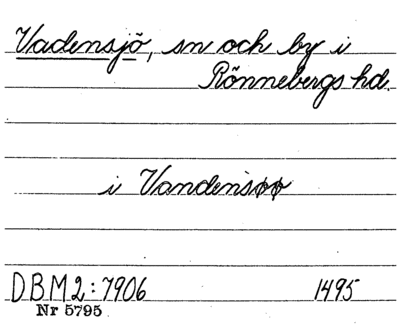 Vadensjö, sn och by i
Rönnebergs hd.
i Vandensøø
DBM2:7906 1495
Nr 5795